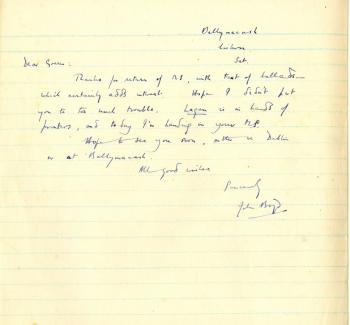 Ballymacash
Lisburn
Sat.
Dear Greer:
Thanks for return of MS, with that of ballads —
which certainly adds interest. Hope I didn't put
you to too much trouble. Lagan is in hands of
printers, and today I'm handing in your MS.
Hope to see you soon, either in Dublin
or at Ballymacash.
All good wishes
Sincerely
John Boyd